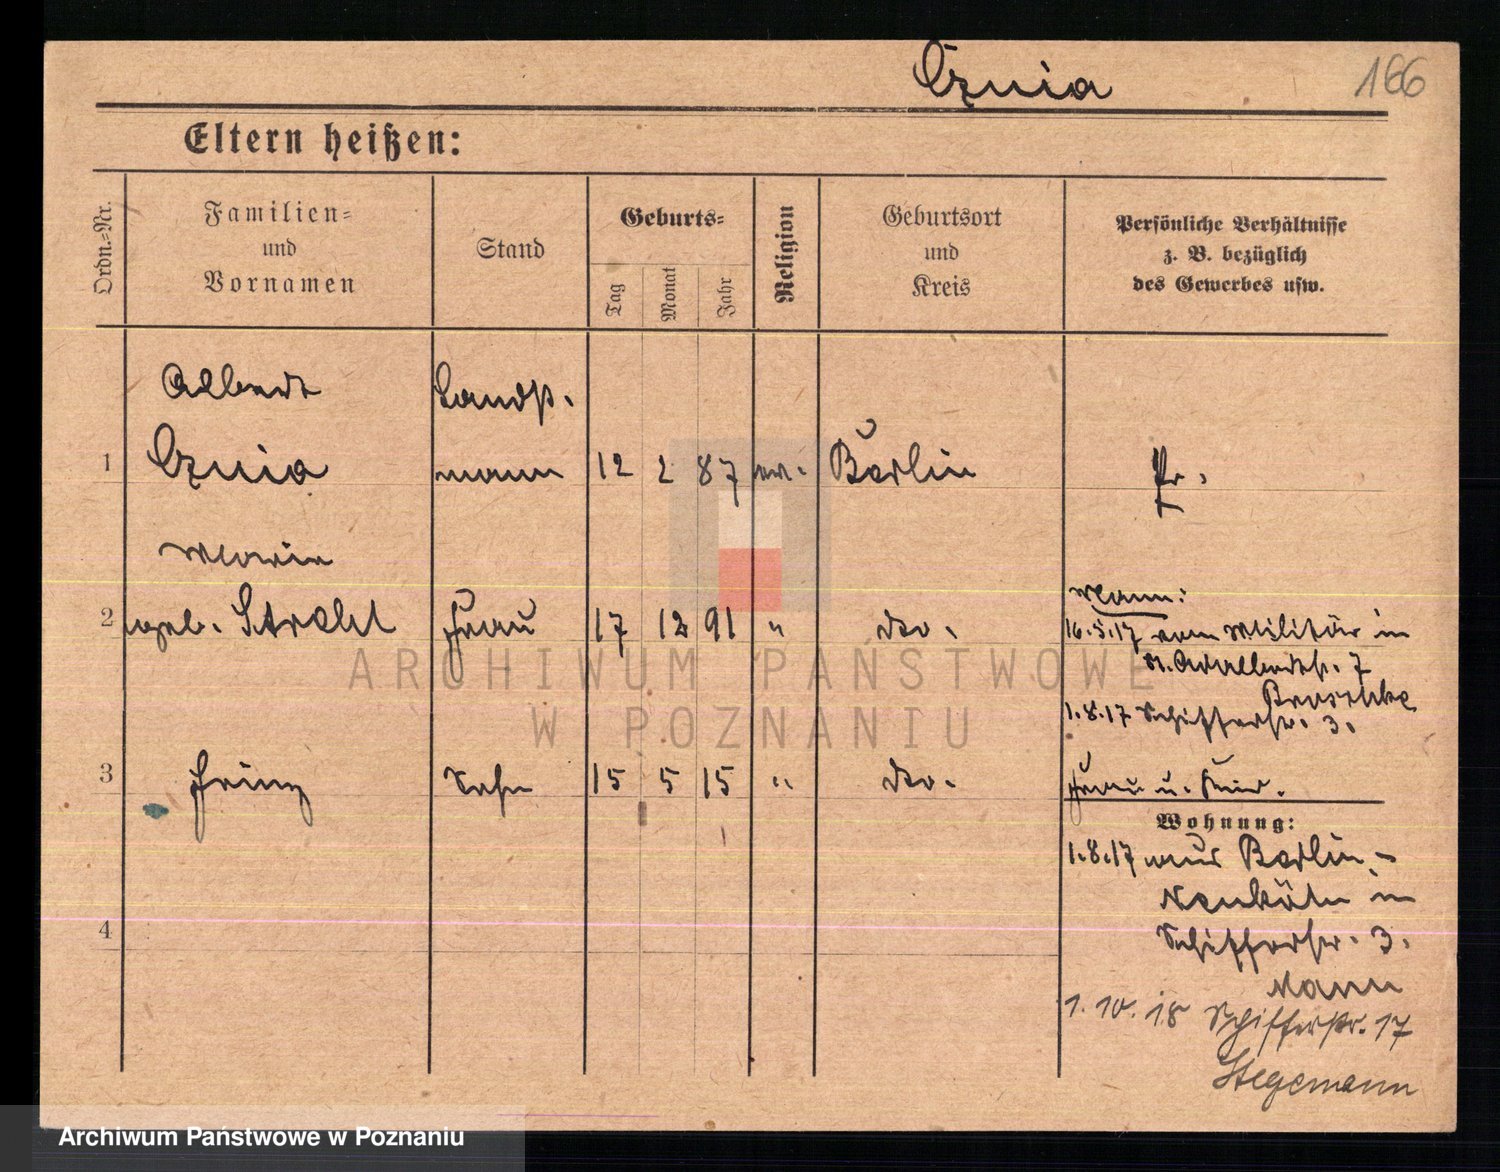 Cznia
166
Eltern heißen:
Ordn.-Nr.
Familien-
und
Vornamen
Stand
Geburts-
Tag
Monat
Jahr
Religion
Geburtsort
und
Kreis
Persönliche Verhältnisse
z. B. bezüglich
des Gewerbes usw.
Albert Landst.
1 Cznia mann 12 2 87 ev. Berlin Pr.
Marie
2 geb. Strehl Frau 17 12 91 " do.
Mann:
16.5.17 vom Militär in
St. Adalbertstr. 7
1.8.17 Schifferstr. 3.
3 Heinz Sohn 15 5 15 " do.
Frau u. Kind.
Wohnung:
1.8.17 aus Berlin-
Neukölln in
Schifferstr. 3.
4
Mann
1.10.18 Schifferstr. 17
Stegemann
ARCHIWUM PAŃSTWOWE
W POZNANIU
Archiwum Państwowe w Poznaniu